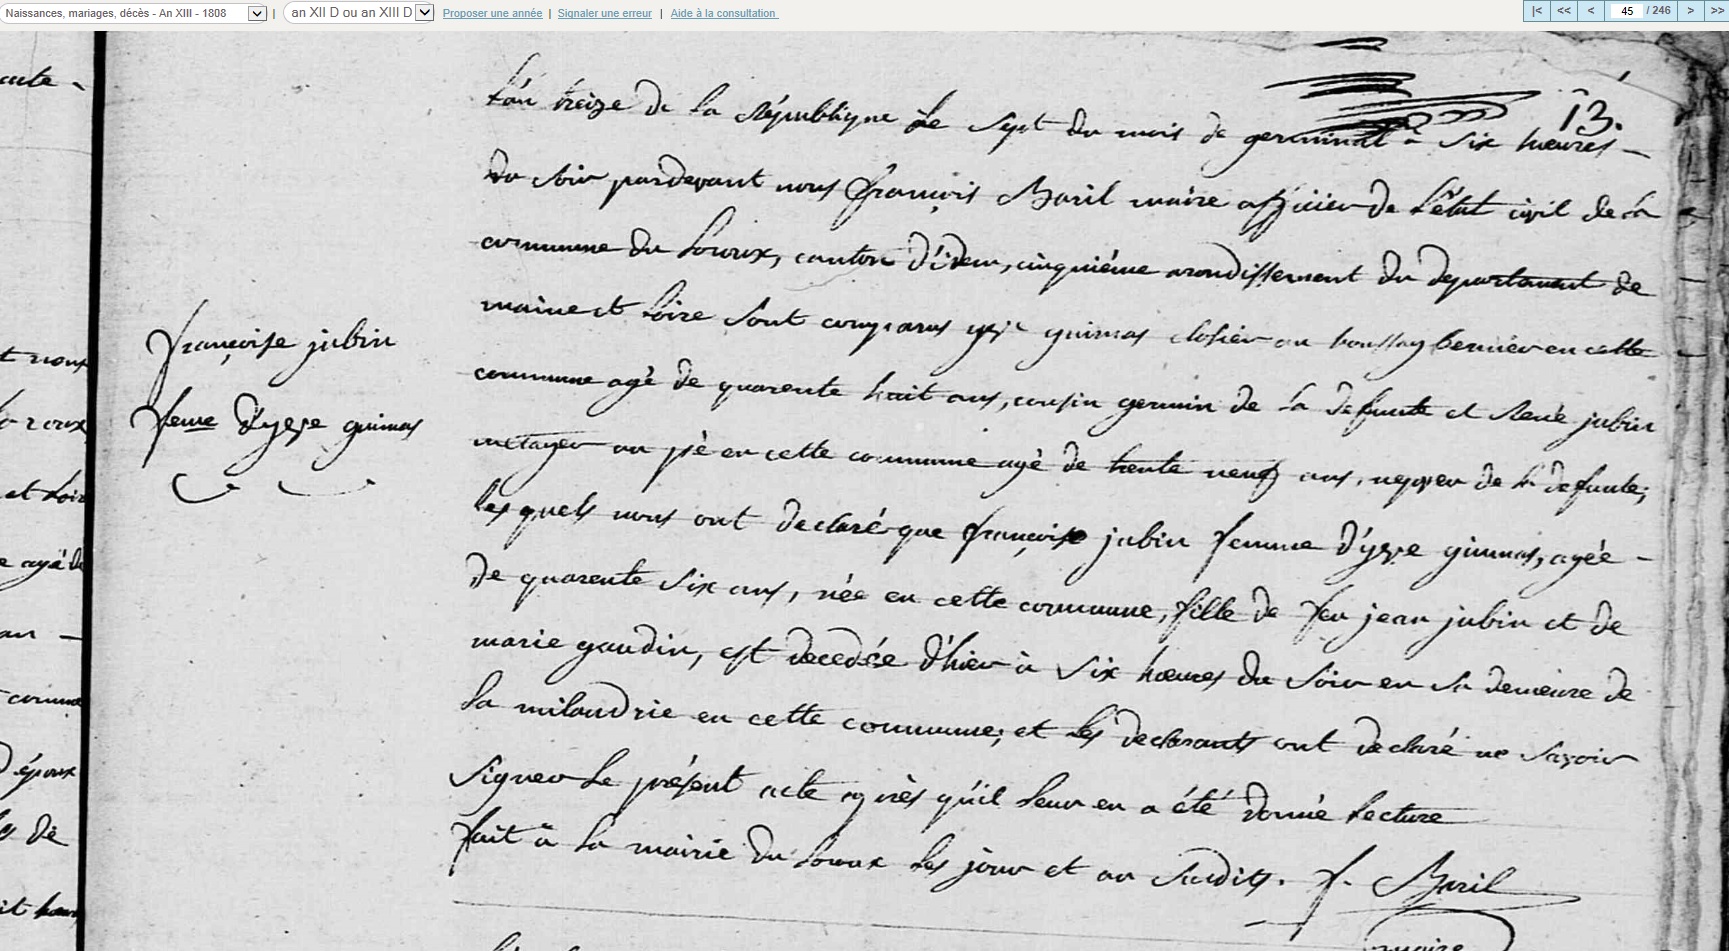 Naissances, mariages, décès - An XIII - 1808 an XII D ou an XIII D Proposer une année | Signaler une erreur | Aide à la consultation |< << < 45 / 246 > >>
acte -
13.
L'an treize de la République Le sept du mois de germinal à six heures
du soir pardevant nous François Baril maire officier de L'état civil de la
commune du Louroux, canton d'idem, cinquième arondissement du departement de
maine et Loire sont comparus guimas closier au houssay bernier en cette
commune agé de quarente huit ans, cousin germin de la defunte et René jubin
metayer au pé en cette commune agé de trente neuf ans, neppveu de la defunte;
les quels nous ont declaré que françoise jubin femme d'yves guimas, agée
de quarente six ans, née en cette commune, fille de feu jean jubin et de
marie gaudin, est decedée d'hier à six heures du soir en sa demeure de
la milandrie en cette commune; et les declarants ont declaré ne savoir
signer le présent acte après qu'il leur en a été donné lecture
fait à la mairie du Louroux les jour et an susdits. f. Baril
maire
françoise jubin
feme d'yves guimas
t nous
et Loir
e agé de
commu
d'époux
es de